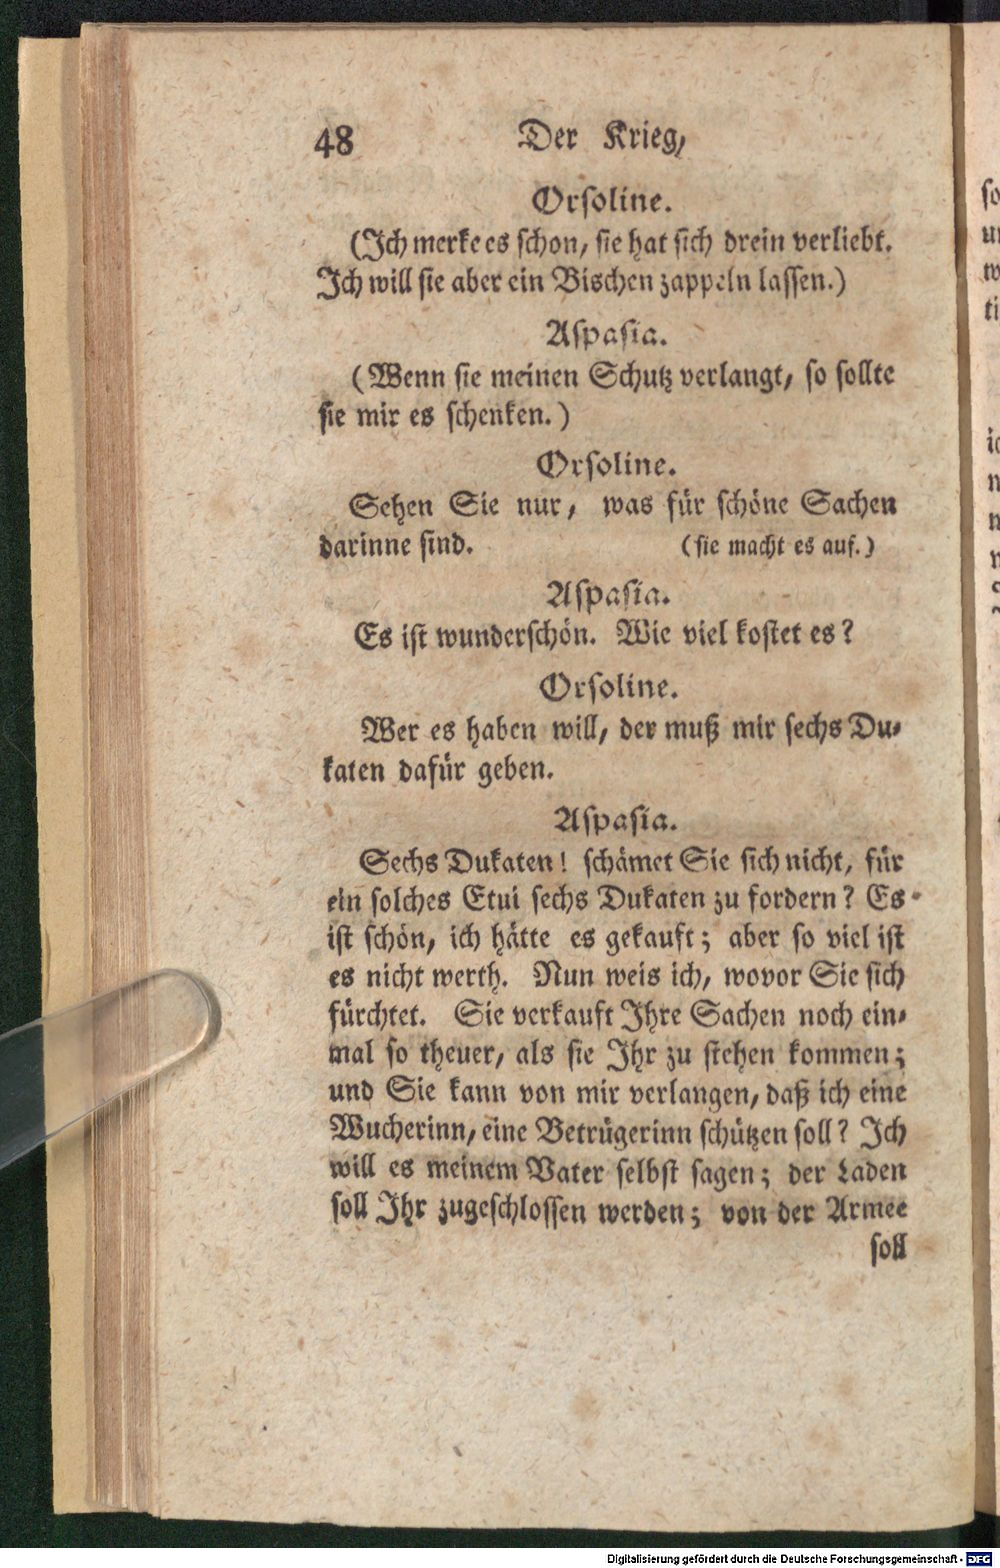 48 Der Krieg,
Orsoline.
(Ich merke es schon, sie hat sich drein verliebt.
Ich will sie aber ein Bischen zappeln lassen.)
Aspasia.
(Wenn sie meinen Schutz verlangt, so sollte
sie mir es schenken.)
Orsoline.
Sehen Sie nur, was für schöne Sachen
darinne sind. (sie macht es auf.)
Aspasia.
Es ist wunderschön. Wie viel kostet es?
Orsoline.
Wer es haben will, der muß mir sechs Du-
katen dafür geben.
Aspasia.
Sechs Dukaten! schämet Sie sich nicht, für
ein solches Etui sechs Dukaten zu fordern? Es
ist schön, ich hätte es gekauft; aber so viel ist
es nicht werth. Nun weis ich, wovor Sie sich
fürchtet. Sie verkauft Ihre Sachen noch ein-
mal so theuer, als sie Ihr zu stehen kommen;
und Sie kann von mir verlangen, daß ich eine
Wucherinn, eine Betrügerinn schützen soll? Ich
will es meinem Vater selbst sagen; der Laden
soll Ihr zugeschlossen werden; von der Armee
soll
Digitalisierung gefördert durch die Deutsche Forschungsgemeinschaft - DFG